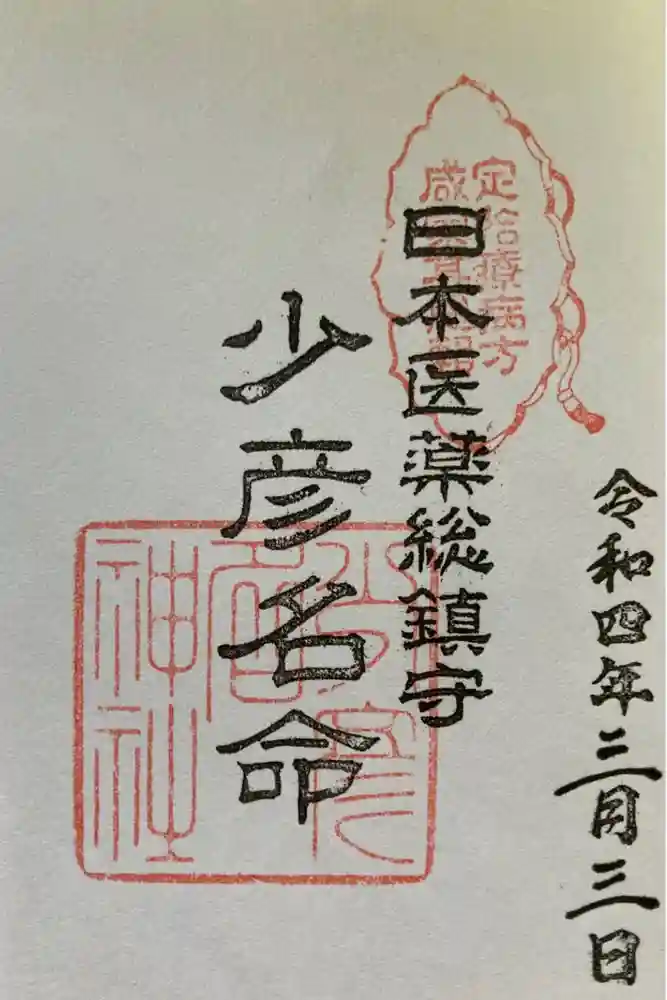 令和四年三月三日
定治療病方
日本医薬総鎮守
少彦名命
少彦名神社